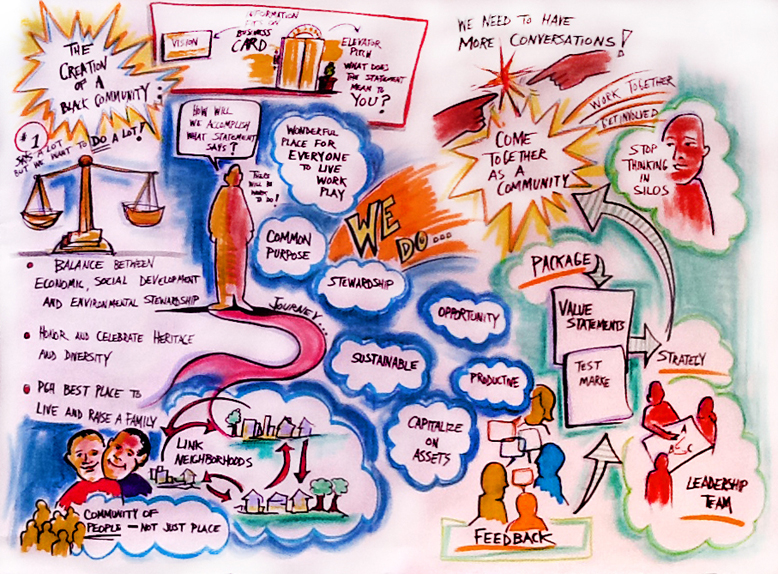 THE
CREATION
OF A
BLACK COMMUNITY:
#1
SAYS A LOT
BUT WE WANT TO DO A LOT!
INFORMATION
VISION
BUSINESS
CARD
ELEVATOR
PITCH
WHAT DOES
THE STATEMENT
MEAN TO
YOU?
WE NEED TO HAVE
MORE CONVERSATIONS!
WORK TOGETHER
GET INVOLVED
COME
TOGETHER
AS A
COMMUNITY
STOP
THINKING
IN
SILOS
HOW WILL
WE ACCOMPLISH
WHAT STATEMENT
SAYS?
THERE
WILL BE
WORK
TO DO!
WONDERFUL
PLACE FOR
EVERYONE
TO LIVE
WORK
PLAY
WE
DO...
COMMON
PURPOSE
STEWARDSHIP
OPPORTUNITY
SUSTAINABLE
PRODUCTIVE
CAPITALIZE
ON
ASSETS
JOURNEY...
BALANCE BETWEEN
ECONOMIC, SOCIAL DEVELOPMENT
AND ENVIRONMENTAL STEWARDSHIP
HONOR AND CELEBRATE HERITAGE
AND DIVERSITY
PGH BEST PLACE TO
LIVE AND RAISE A FAMILY
LINK
NEIGHBORHOODS
COMMUNITY OF
PEOPLE – NOT JUST PLACE
PACKAGE
VALUE
STATEMENTS
TEST
MARKE
STRATELY
A
ASC
LEADERSHIP
TEAM
FEEDBACK